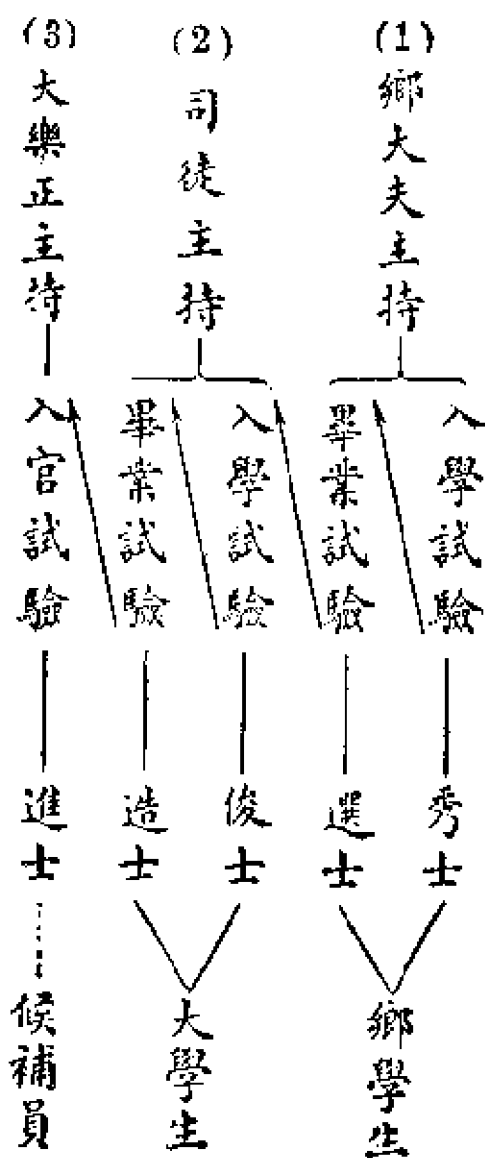 (1)
鄉大夫主持
入學試驗
秀士
畢業試驗
選士
鄉學生
(2)
司徒主持
入學試驗
俊士
畢業試驗
造士
大學生
(3)
大樂正主待
入官試驗
進士
候補員